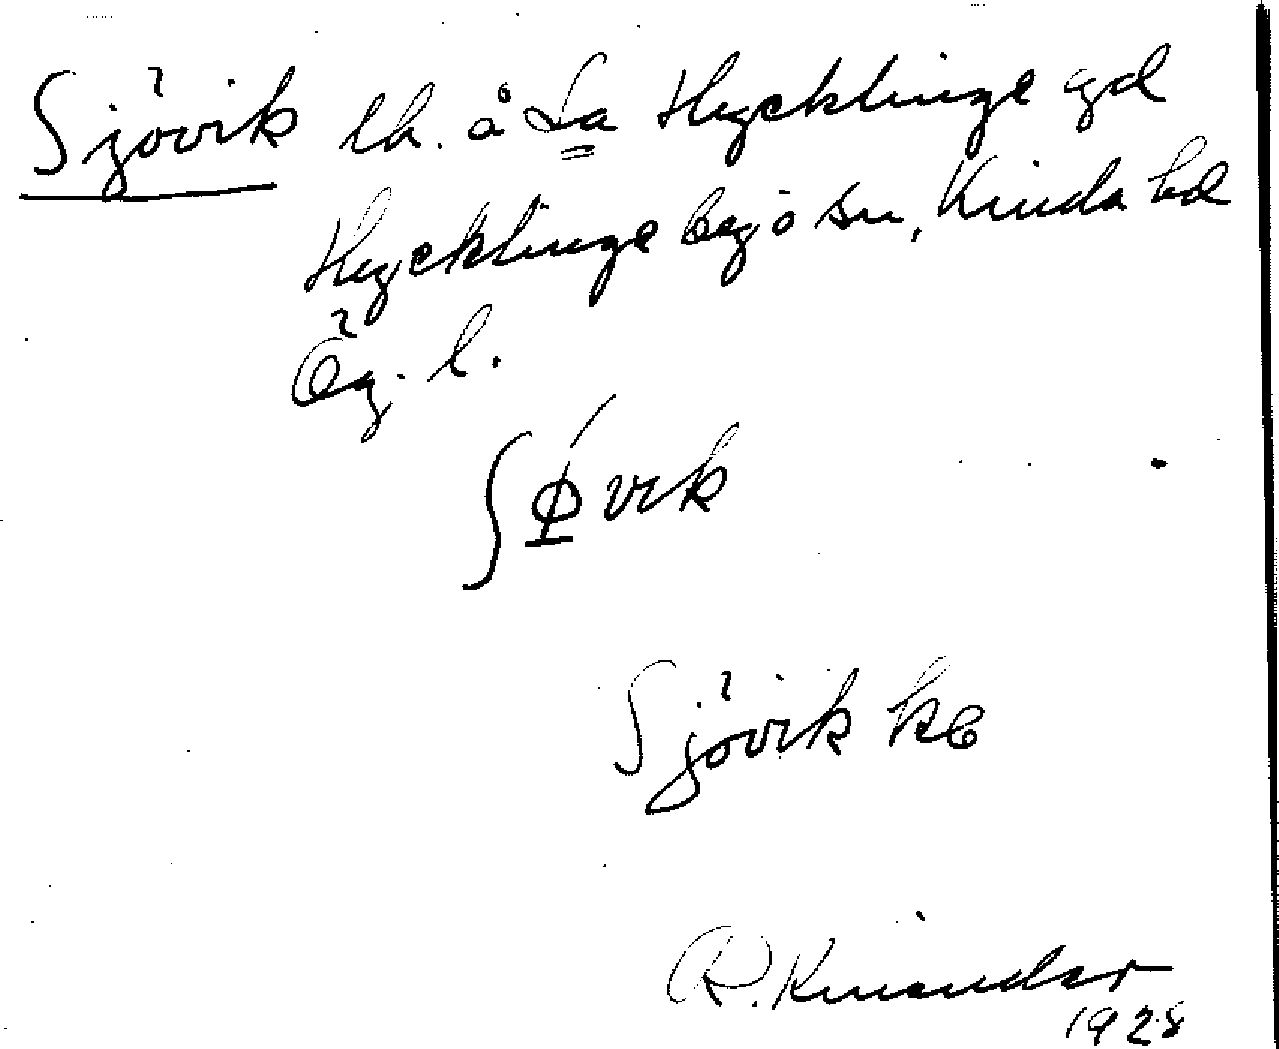 Sjövik lh. å La Hycklinge gd
Hycklinge by o sn, Kinda hd
Ög. l.
Sjövik kb
R. Kinander
1928